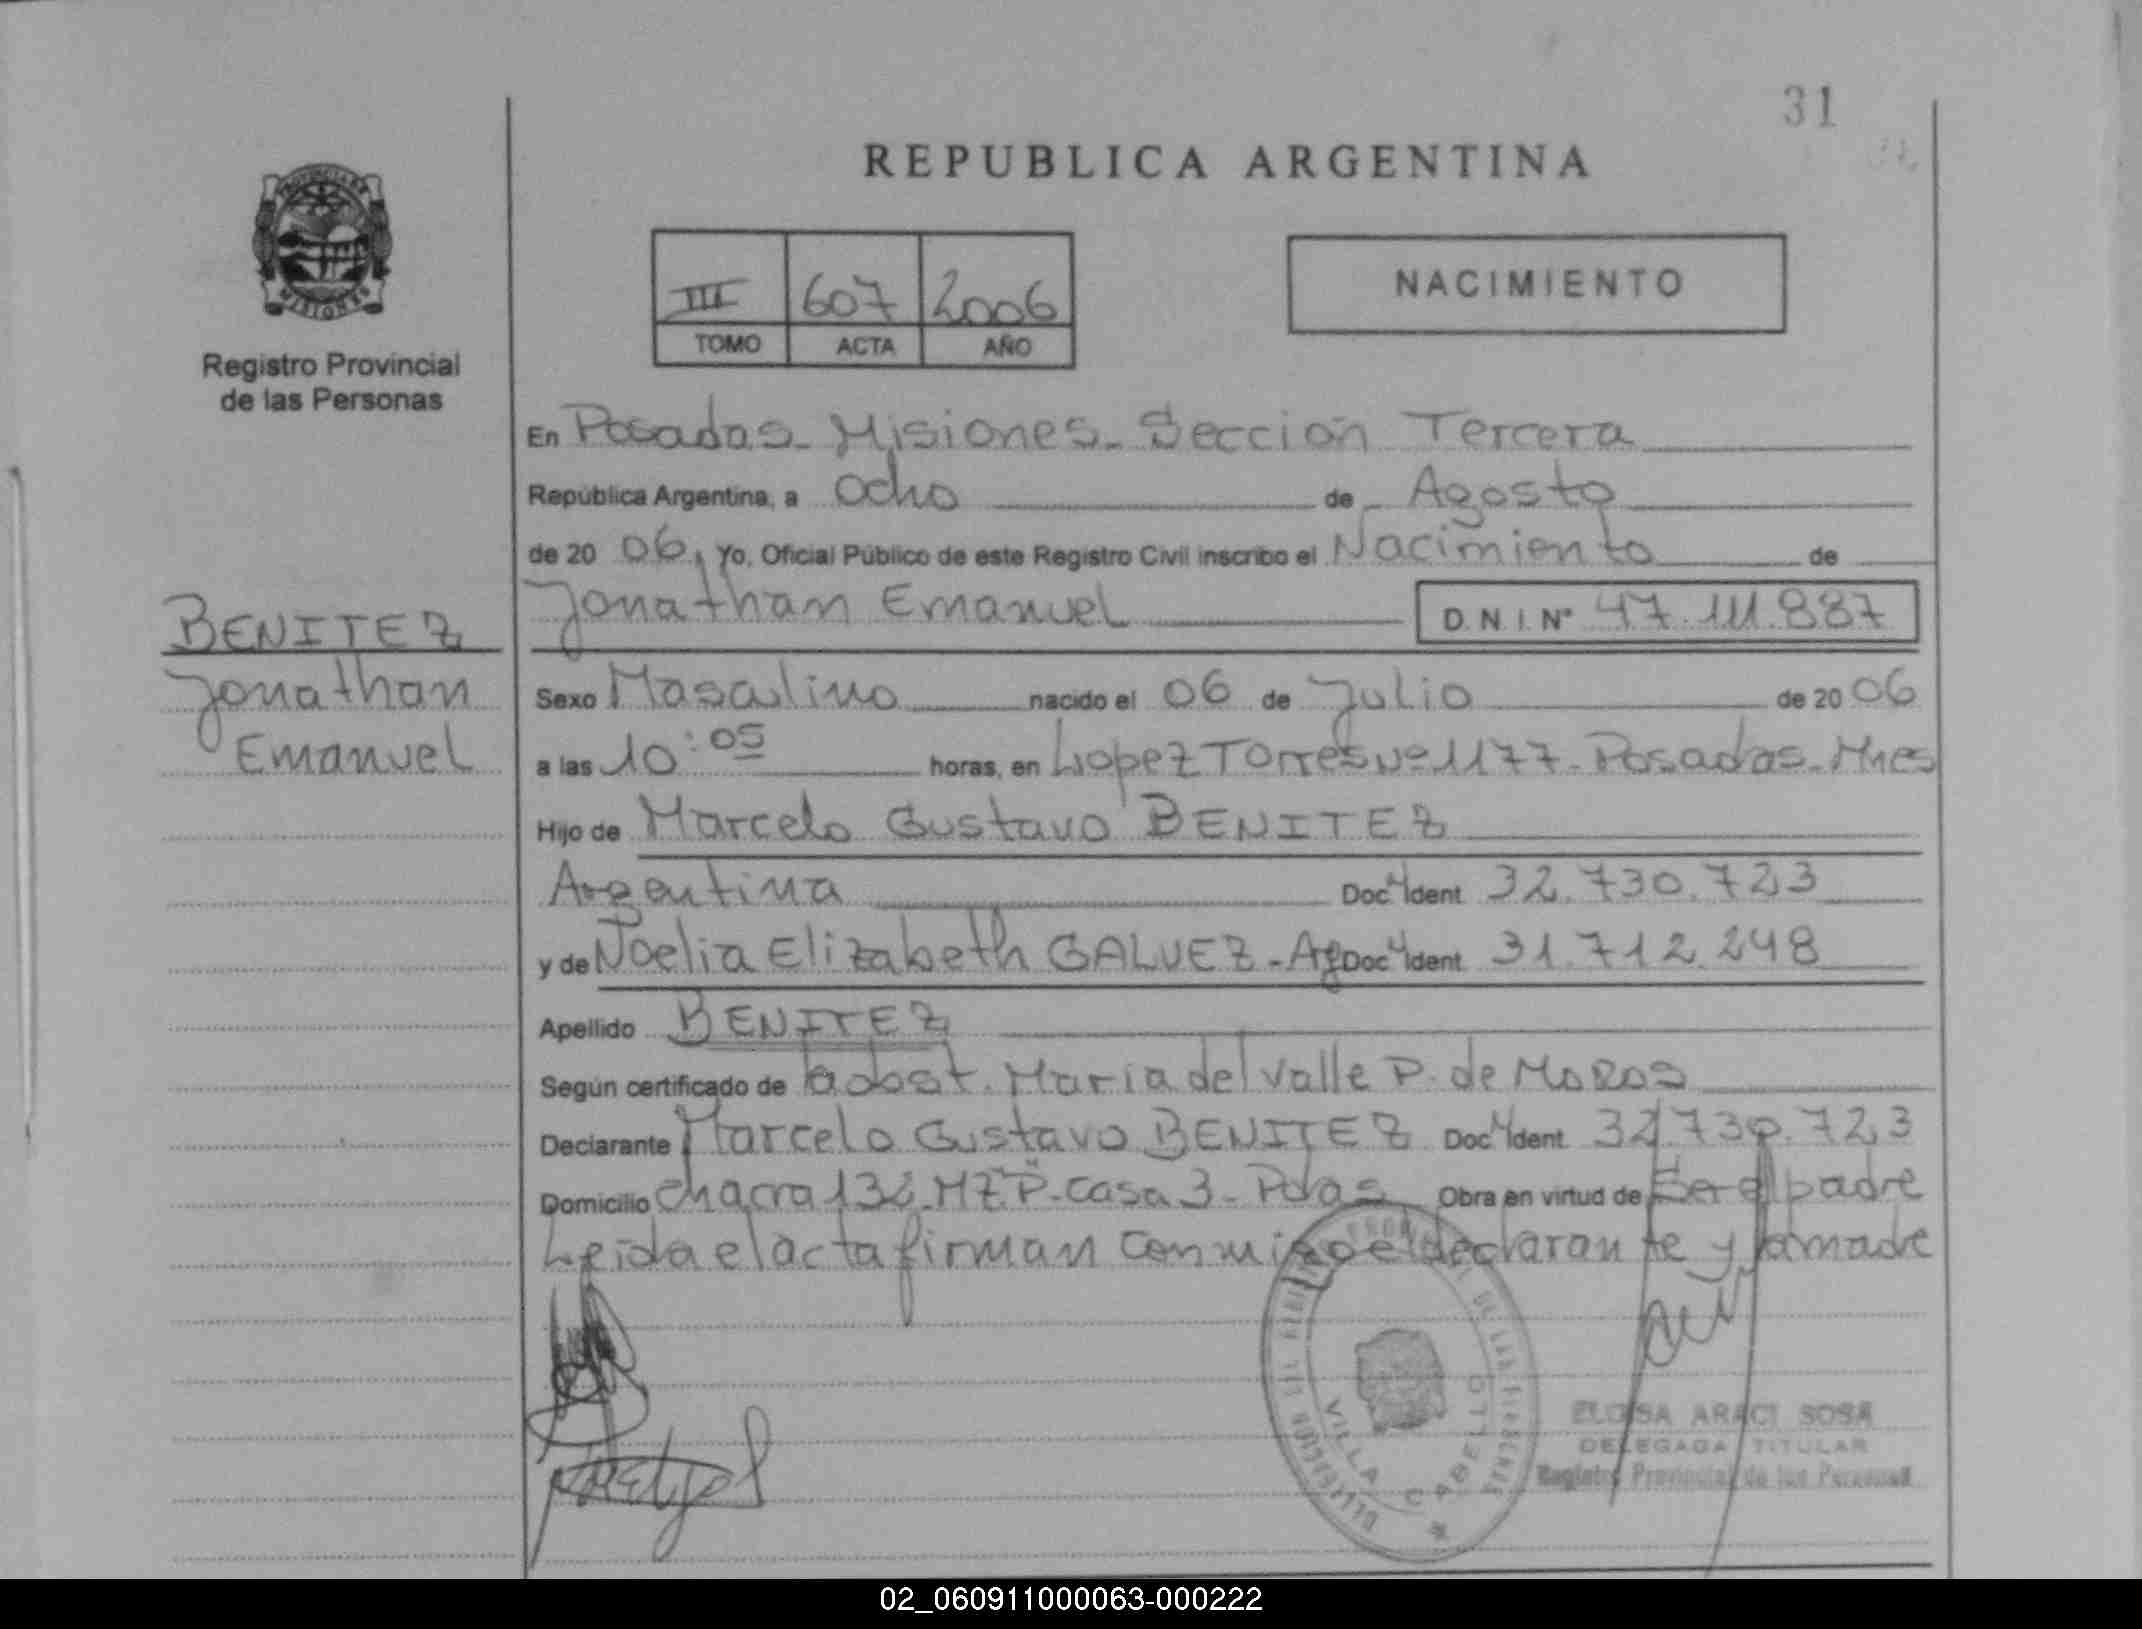 31
REPUBLICA ARGENTINA
NACIMIENTO
III 607 2006
TOMO ACTA AÑO
MISIONES
Registro Provincial
de las Personas
BENITEZ
Jonathan
Emanuel
En Posadas - Misiones - Sección Tercera
República Argentina, a Ocho de Agosto
de 20 06, Yo, Oficial Público de este Registro Civil inscribo el Nacimiento de
Jonathan Emanuel D.N.I. Nº 47.111.887
Sexo Masculino nacido el 06 de Julio de 20 06
a las 10:05 horas, en Lopez Torres Nº 1177 - Posadas - Mnes
Hijo de Marcelo Gustavo BENITEZ
Argentina Doc. Ident. 32.730.723
y de Noelia Elizabeth GALVEZ - Ag Doc. Ident. 31.712.248
Apellido BENITEZ
Según certificado de la obst. Maria del Valle P. de MOROS
Declarante Marcelo Gustavo BENITEZ Doc. Ident. 32.730.723
Domicilio Chacra 132 - MZ P - Casa 3 - Pdas Obra en virtud de Ser el padre
Leida el acta firman conmigo el declarante y la madre
VILLA CABELLO
ELOISA ARACI SOSA
DELEGADA TITULAR
Registro Provincial de las Personas
02_060911000063-000222